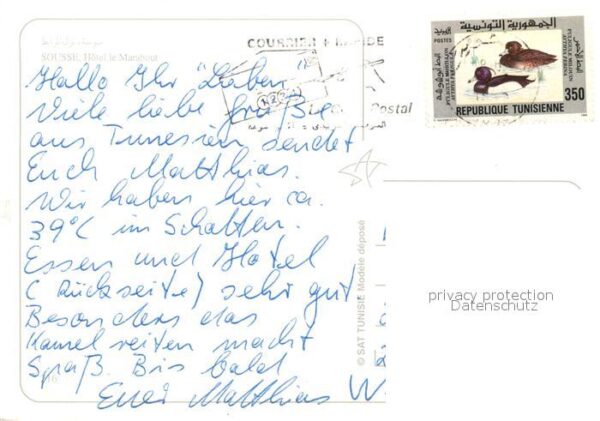 SOUSSE, Hôtel le Marabout
COURRIER + RAPIDE
Postal
الجمهورية التونسية
POSTES
REPUBLIQUE TUNISIENNE
350
Hallo Ihr "Lieben"
Viele liebe Grüße
aus Tunesien sendet
Euch Matthias.
Wir haben hier ca.
39°C im Schatten.
Essen und Hotel
(Rückseite) sehr gut.
Besonders das
Kamelreiten macht
Spaß. Bis bald
Euer Matthias W
© SAT TUNISIE Modèle déposé
privacy protection
Datenschutz